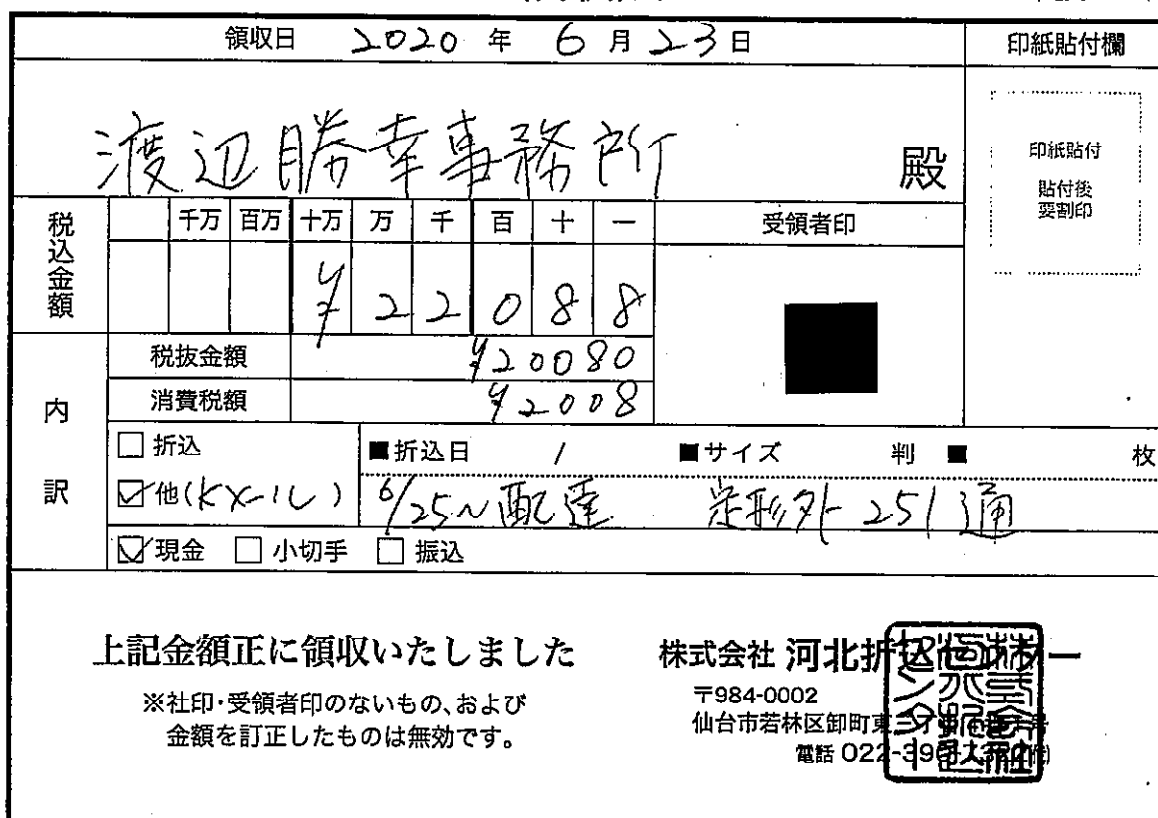 領収日 2020 年 6 月 23 日 印紙貼付欄
渡辺勝幸事務所 殿
印紙貼付
貼付後
要割印
税込金額 千万 百万 十万 万 千 百 十 一 受領者印
¥ 2 2 0 8 8
内訳
税抜金額 ¥20080
消費税額 ¥2008
□ 折込 ■折込日 / ■サイズ 判 ■ 枚
☑他(Kメール) 6/25~配達 定形外 251通
☑現金 □ 小切手 □ 振込
上記金額正に領収いたしました
※社印・受領者印のないもの、および
金額を訂正したものは無効です。
株式会社 河北折込センター
〒984-0002
仙台市若林区卸町東三丁目
電話 022-390-
株式会社
河北折込
センター